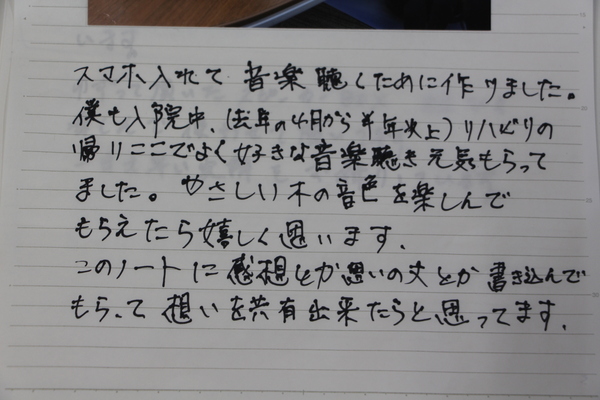 スマホ入れて音楽聴くために作りました。
僕も入院中、(去年の4月から半年以上)リハビリの
帰りここでよく好きな音楽聴き元気もらって
ました。やさしい木の音色を楽しんで
もらえたら嬉しく思います。
このノートに感想とか思いの丈とか書き込んで
もらって想いを共有出来たらと思ってます。